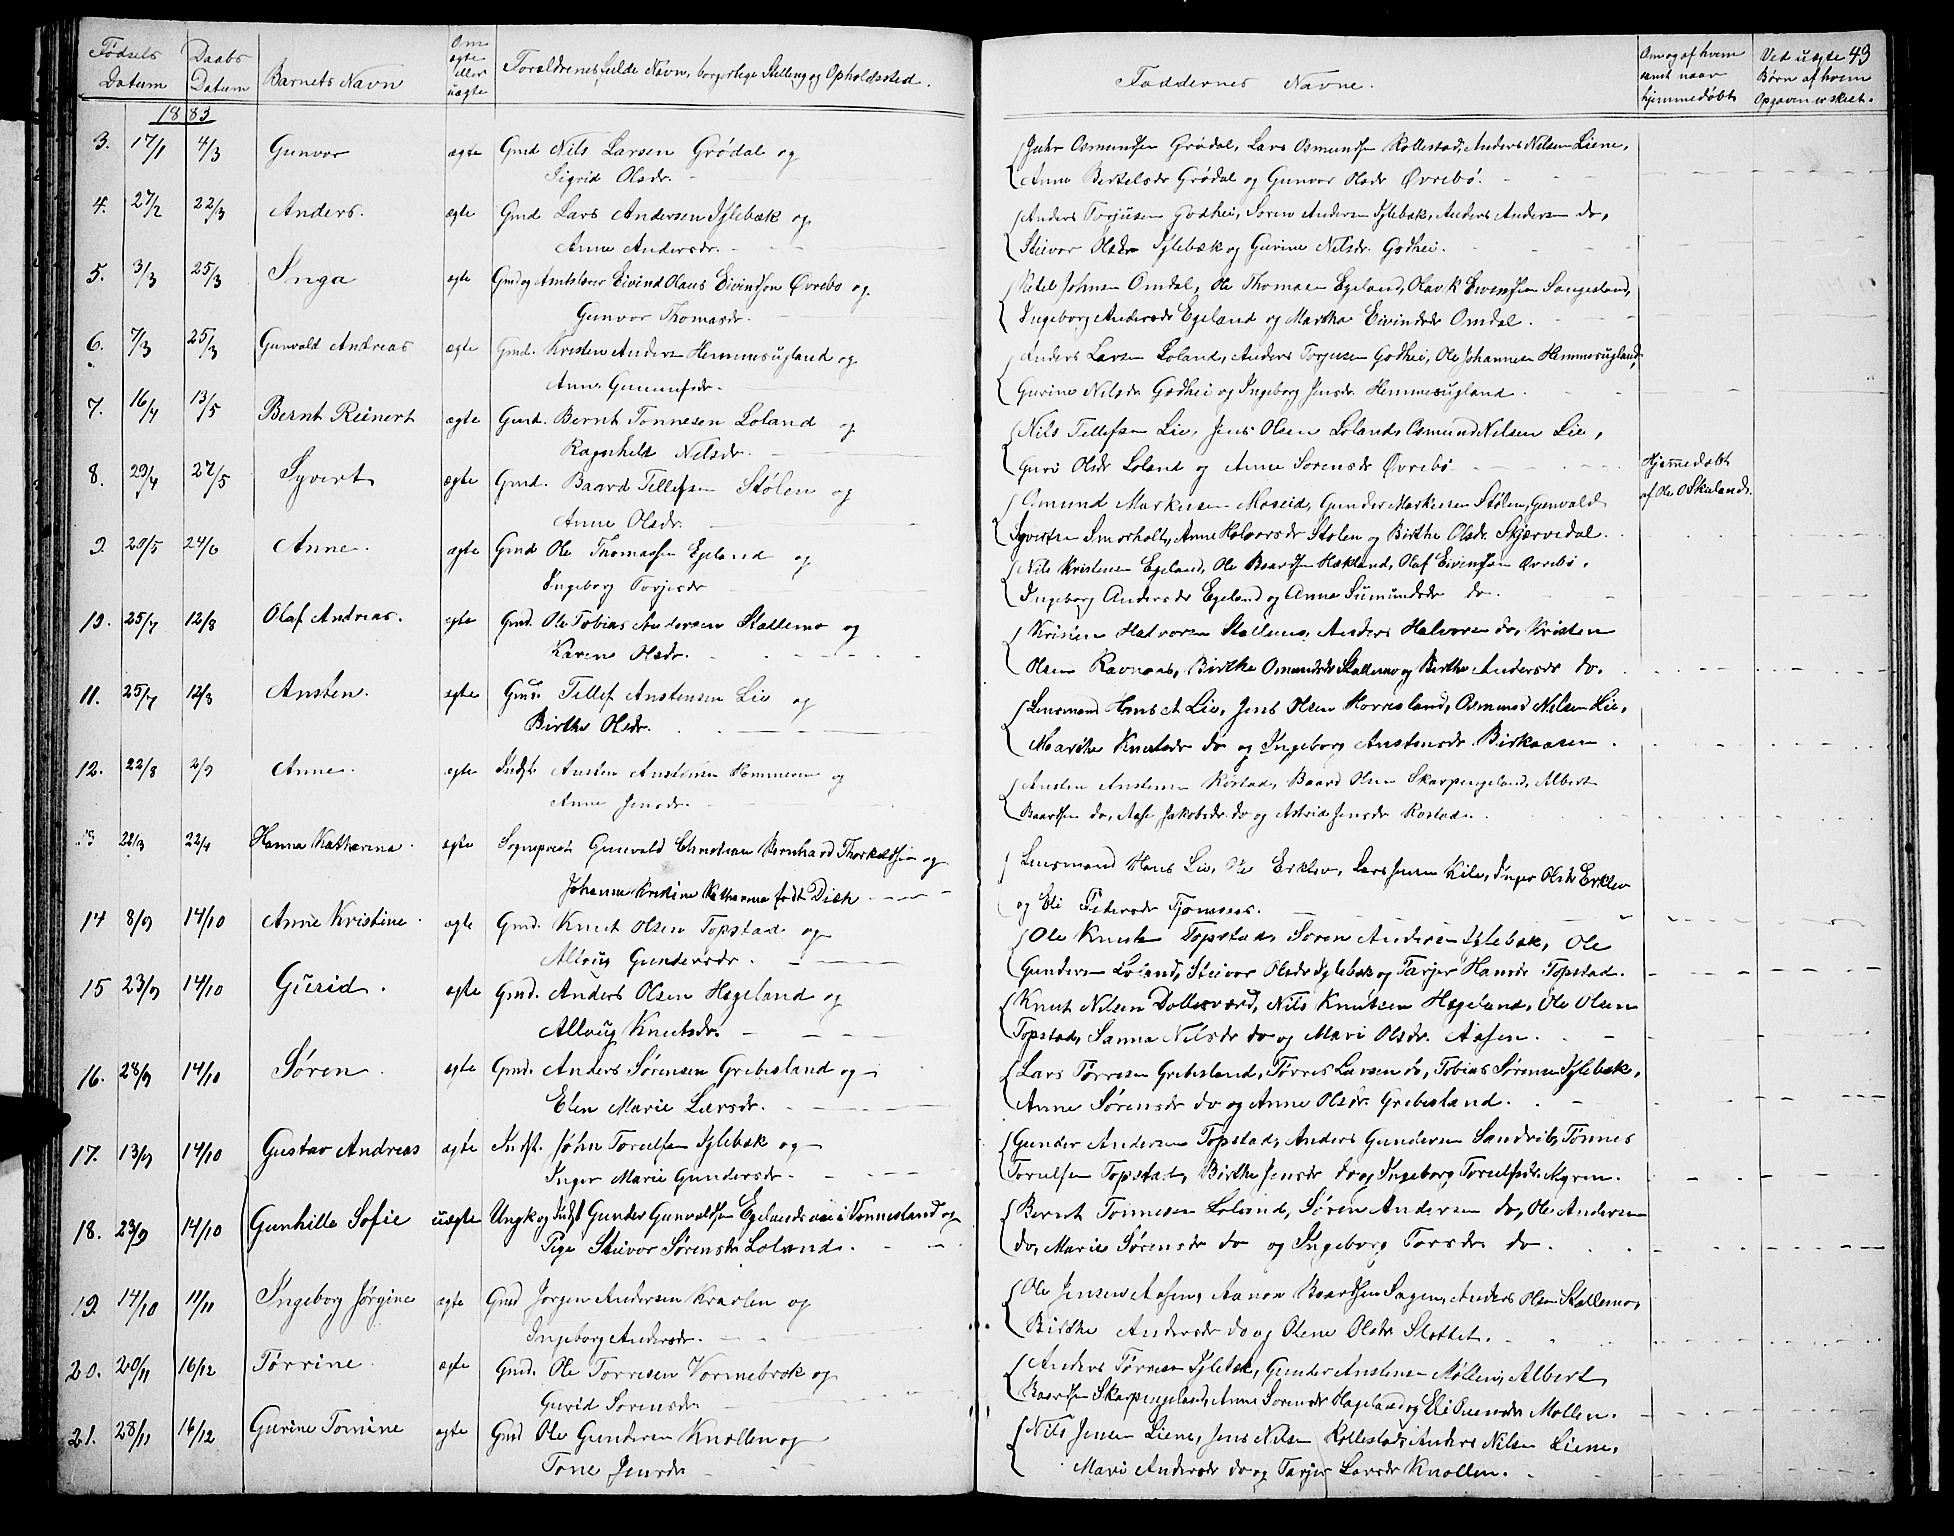 Fødsels Datum
Daabs Datum
Barnets Navn
Om ægte eller uægte
Forældrenes fulde Navn, borgerlige Stilling og Opholdssted.
Faddernes Navne.
Om og af hvem samt naar hjemmedøbt
Ved uægte Børn af hvem Opgaven er skeet.
43
1883
3. 17/1 4/3 Gunvor ægte Gmd Nils Larsen Grødal og
Sigrid Olsdr.
Osmundsen Grødal, Lars Osmundsen Rollestad, Anders Nilsen Liene,
Anne Bertelsdr Grødal og Gunvor Olsdr Øvrebø.
4. 27/2 22/3 Anders. ægte Gmd Lars Andersen Iglebæk og
Anne Andersdr.
Anders Torjusen Godhei, Søren Andersen Iglebæk, Anders Andersen do,
Steivor Olsdr Iglebæk og Gurine Nilsdr. Godhei.
5. 3/3 25/3 Inga ægte Gmd og Eivind Olaus Eivindsen Øvrebø og
Gunvor Thomasdr.
Ketel Johnsen Omdal, Ole Thomasen Egeland, Olav K Eivensen Sangesland,
Ingeborg Andersdr Egeland og Martha Eivindsdr Omdal.
6. 7/3 25/3 Gunvald Andreas ægte Gmd. Kristen Andersen Hemmesugland og
Anne
Anders Larsen Loland, Anders Torjusen Godhei, Ole Johannesen Hemmesugland,
Gurine Nilsdr Godhei og Ingeborg Jensdr Hemmesugland.
7. 16/4 13/5 Bernt Reinert ægte Gmd. Bernt Tonnesen Loland og
Ragnhild Nilsdr.
Nils Tellefsen Lie, Jens Olsen Loland, Osmund Nilsen Lie,
Guri Olsdr Loland og Anne Sorensdr Øvrebø
8. 29/4 27/5 Syvert ægte Gmd. Baard Tellefsen Stølen og
Anne Olsdr.
Osmund Markusen Moseid, Gunder Markusen Stølen, Gunvald
Syvertsen Smorholt, Anne Halvorsdr Stolen og Birthe Olsdr. Skjærvedal.
Hjemmedøbt
af Ole O Skieland.
9. 29/5 24/6 Anne. ægte Gmd Ole Thomassen Egeland og
Ingeborg Torjesdr
Nils Kristensen Egeland, Ole Baardsen Hækland, Olaf Eivensen Øvrebø,
Ingeborg Andersdr Egeland og Anna do.
10. 25/7 12/8 Olaf Andreas. ægte Gmd. Ole Tobias Andersen Stallemo og
Karene Olsdr.
Kristen Halvorsen Stallemo, Anders Halvorsen do, Kristen
Olsen Ravnaas, Birthe Osmundsdr Stallemo og Birthe Andersdr do.
11. 25/7 12/8 Ansten. ægte Gmd. Tellef Anstensen Lie og
Birthe Olsdr.
Lensmand Hans A Lie, Jens Olsen Horresland, Osmund Nilsen Lie,
Marthe Knutsdr do og Ingeborg Anstensdr. Birkaasen.
12. 22/8 2/9 Anne. ægte Indst. Ansten Anstensen Hommeren og
Anne Jensdr.
Ansten Anstensen Røstad, Baard Olsen Skarpengeland, Albert
Baardsen do, Aase Jakobsdr do og Astrid Jensdr Røstad.
13 22/4 Hanna Katharina. ægte Sogneprest Gunvald Christian Bernhard Thorkildsen og
Johanne Kristine Katharina født Dick
Lensmand Hans Lie, Ole Erklev, Lars Jensen Kile, Inger Olsdr Erklev
og Eli
14 8/9 14/10 Anne Kristine. ægte Gmd. Knut Olsen Topstad og
Allaug Gundersdr.
Ole Knutsen Topstad, Søren Andersen Iglebæk, Ole
Gundersen Loland, Steivor Olsdr Iglebæk og Tarjer Hansdr Topstad.
15 23/9 14/10 Gurid. ægte Gmd. Anders Olsen Hægeland og
Allaug Knutsdr.
Knut Nilsen Dollesværd, Nils Knutsen Hægeland, Ole Olsen
Topstad, Sanna Nilsdr do og Mari Olsdr. Aasen.
16. 28/9 14/10 Søren. ægte Gmd. Anders Sørensen Grebesland og
Elen Marie Larsdr.
Lars Tørresen Grebesland, Tørres Larsen do, Tobias Sørensen Iglebæk,
Anne Sørensdr do og Anne Olsdr. Grebesland.
17. 13/9 14/10 Gustav Andreas ægte Indst. John Torulfsen Iglebæk og
Inger Marie Gundersdr.
Gunder Andersen Topstad, Anders Gundersen Sandrib, Tønnes
Torulfsen Topstad, Birthe Jensdr do og Ingeborg Torulfsdr. Nygren.
18. 23/9 14/10 Gunhille Sofie uægte Ungk og Indst Gunder Gunvaldsen i Tonnesland og
Pige Steivor Sørensdr Loland.
Bernt Tonnesen Loland, Søren Andersen do, Ole Andersen
do, Marie Sørensdr do og Ingeborg Torsdr do.
19. 14/10 11/11 Ingeborg Jørgine ægte Gmd Jørgen Andersen og
Ingeborg Andersdr.
Ole Jensen Aasen, Aanon Baardsen Sagen, Anders Olsen Stallemo,
Birthe Andersdr do og Olene Olsdr Slottet.
20. 20/11 16/12 Tørrine. ægte Gmd. Ole Tørresen Vormebrok og
Gurid Sørensdr.
Anders Tørresen Iglebæk, Gunder Anstensen Møllen, Albert
Baardsen Skarpengeland, Anne Sorensdr Hægeland og Eli Mollen.
21. 28/11 16/12 Gurine Tomine ægte Gmd Ole Gundersen Knollen og
Tone Jensdr
Nils Jensen Liene, Jens Nilsen Rollestad, Anders Nilsen Liene,
Mari Andersdr do og Tarjer Larsdr Knollen.